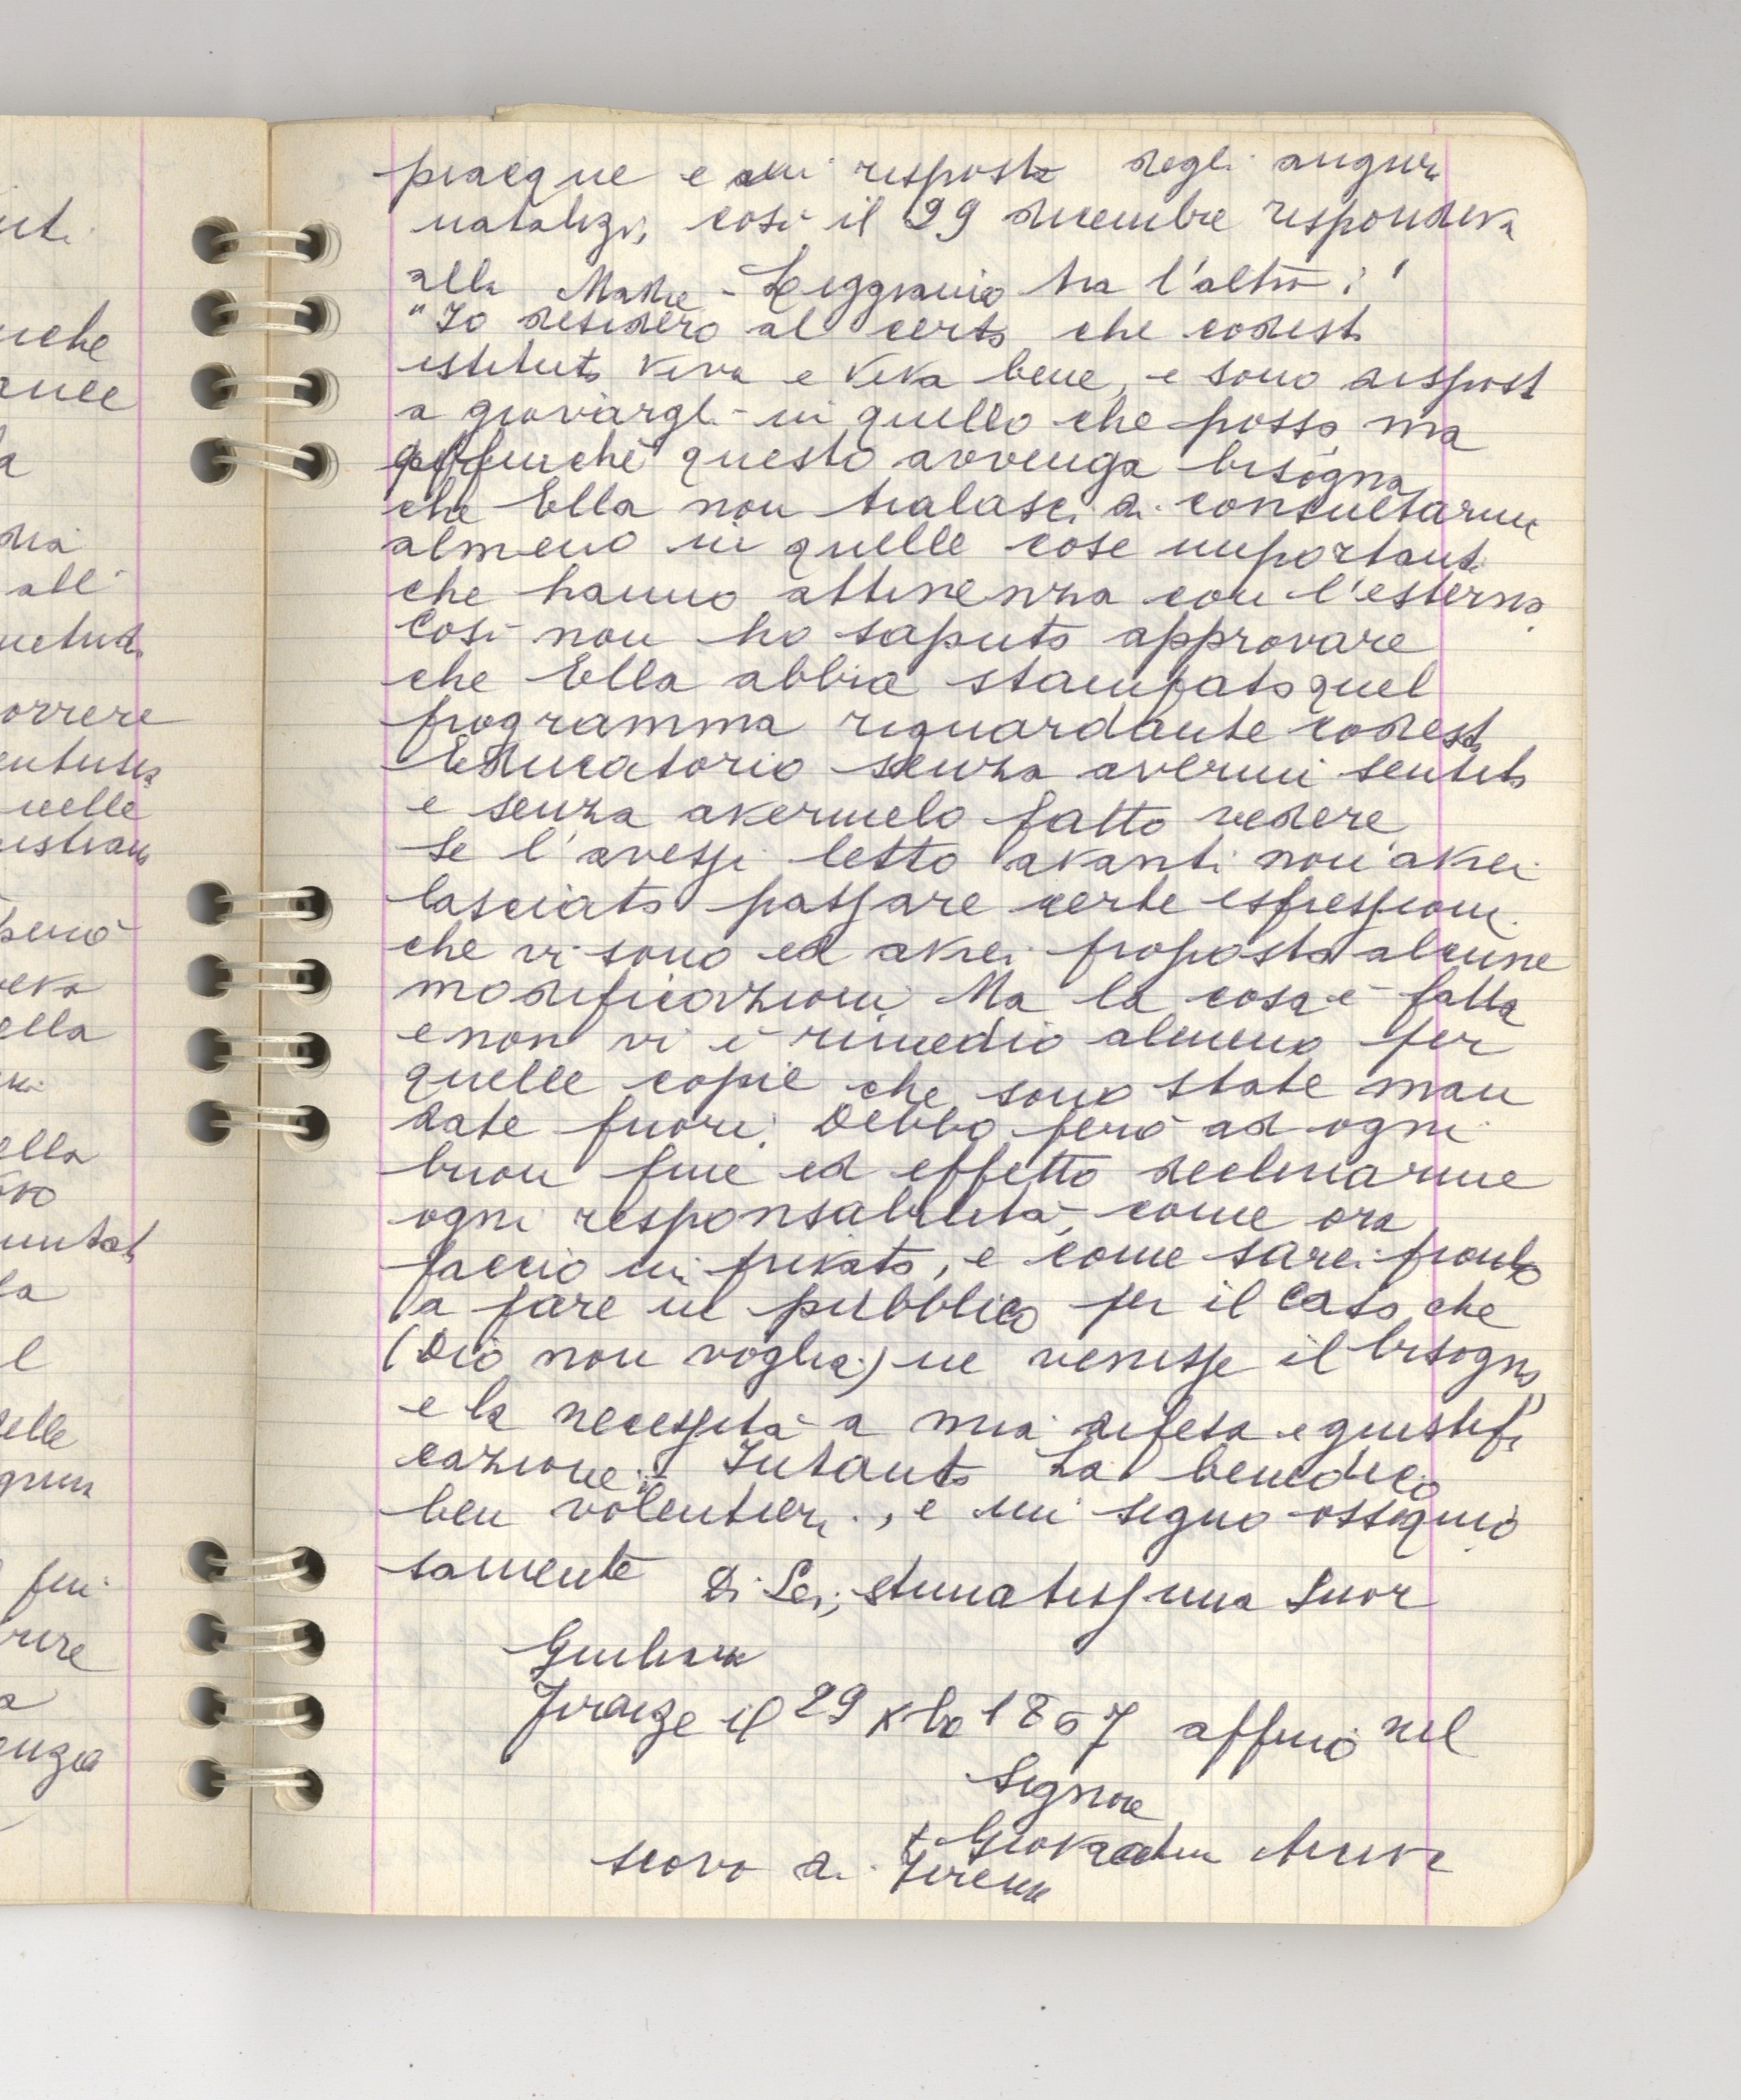 piacque e in risposta degli auguri
natalizi, così il 29 dicembre rispondeva
alla Madre - Leggiamo tra l'altro:
"Io desidero al certo che codesto
istituto viva e viva bene, e sono disposto
a giovargli in quello che posso, ma
affinchè questo avvenga bisogna
che Ella non tralasci di consultarmi
almeno in quelle cose importanti
che hanno attinenza con l'esterno.
Così non ho saputo approvare
che Ella abbia stampato quel
programma riguardante codesto
Educatorio senza avermi sentito
e senza avermelo fatto vedere
Se l'avessi letto avanti non avrei
lasciato passare certe espressioni
che vi sono ed avrei proposto alcune
modificazioni. Ma la cosa è fatta
e non vi è rimedio almeno per
quelle copie che sono state man
date fuori. Debbo però ad ogni
buon fine ed effetto declinarne
ogni responsabilità, come ora
faccio in privato, e come sarei pronto
a fare in pubblico per il caso che
(Dio non voglia) ne venisse il bisogno
e la necessità a mia difesa e giustifi
cazione. Intanto La benedico
ben volentieri, e mi segno ossequio
samente Di Lei, stimatissima Suor
Giuliana
Firenze il 29 Xbre 1867 affmo nel
Signore
+ Giovacchino
scovo di Firenze